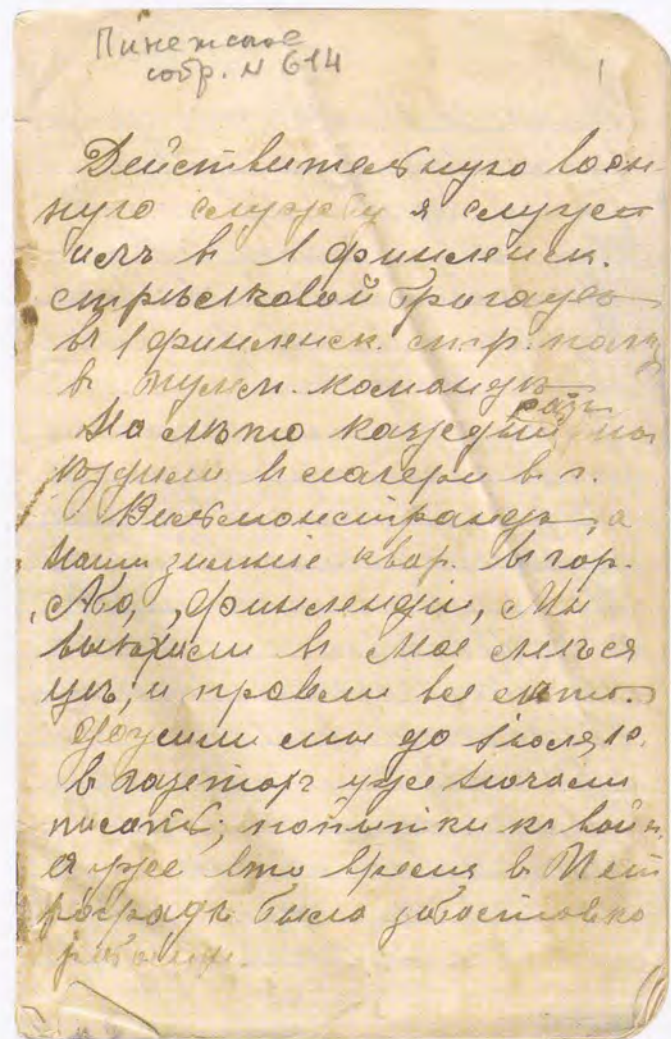 Пинежское
собр. N 614
1
Действительную воен-
ную службу я служ
илъ в 1 финленск.
стрѣлковой бригадѣ
въ 1 финленск. стр. полку
в пулем. командѣ
разъ
На лѣто каждый мы
ѣздили в лагери в г.
Вильмонстрандъ, а
наши зимніе квар. въ гор.
Або, финлендіи, Мы
выѣхали в Мае мѣся
цѣ, и провели все лѣто.
Дожили мы до Іюля 10.
в газетах уже начали
писать, попытки къ войн.
а уже вто время в Пет
роградѣ было забостовка
рабочих.